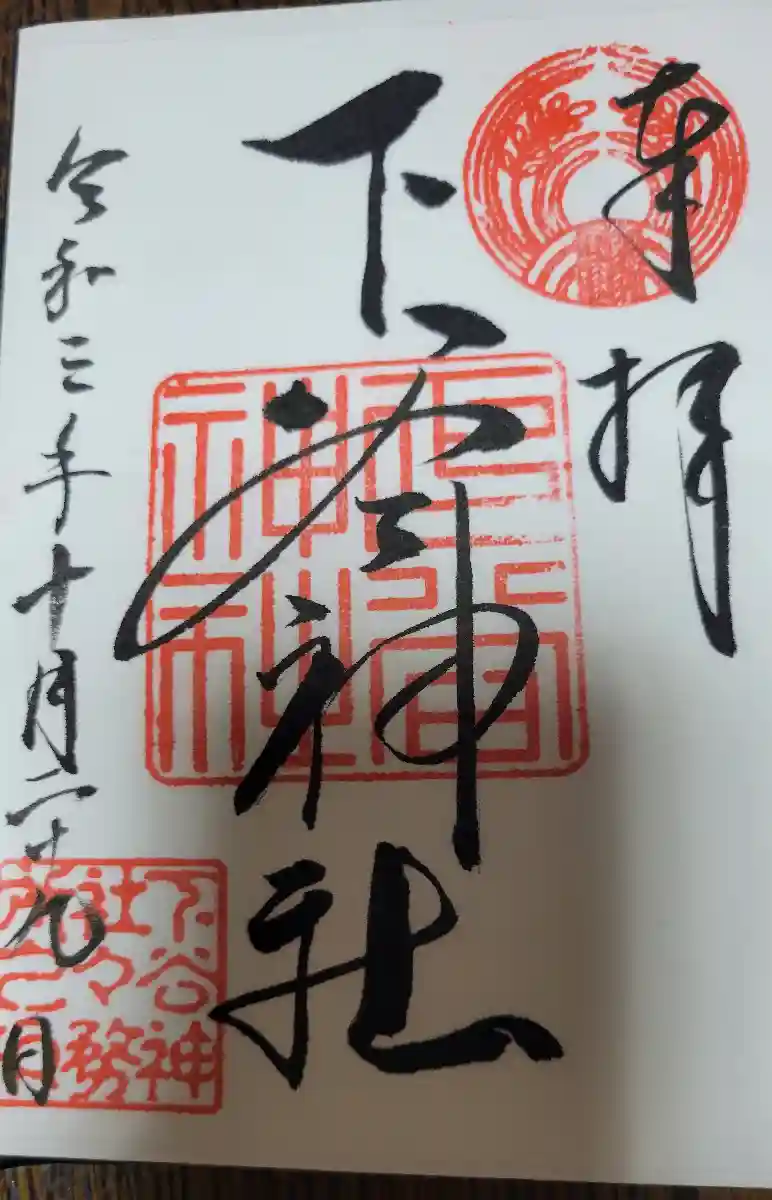 奉拝
下谷神社
令和三年十月二十九日
下谷神
社々務
所之印